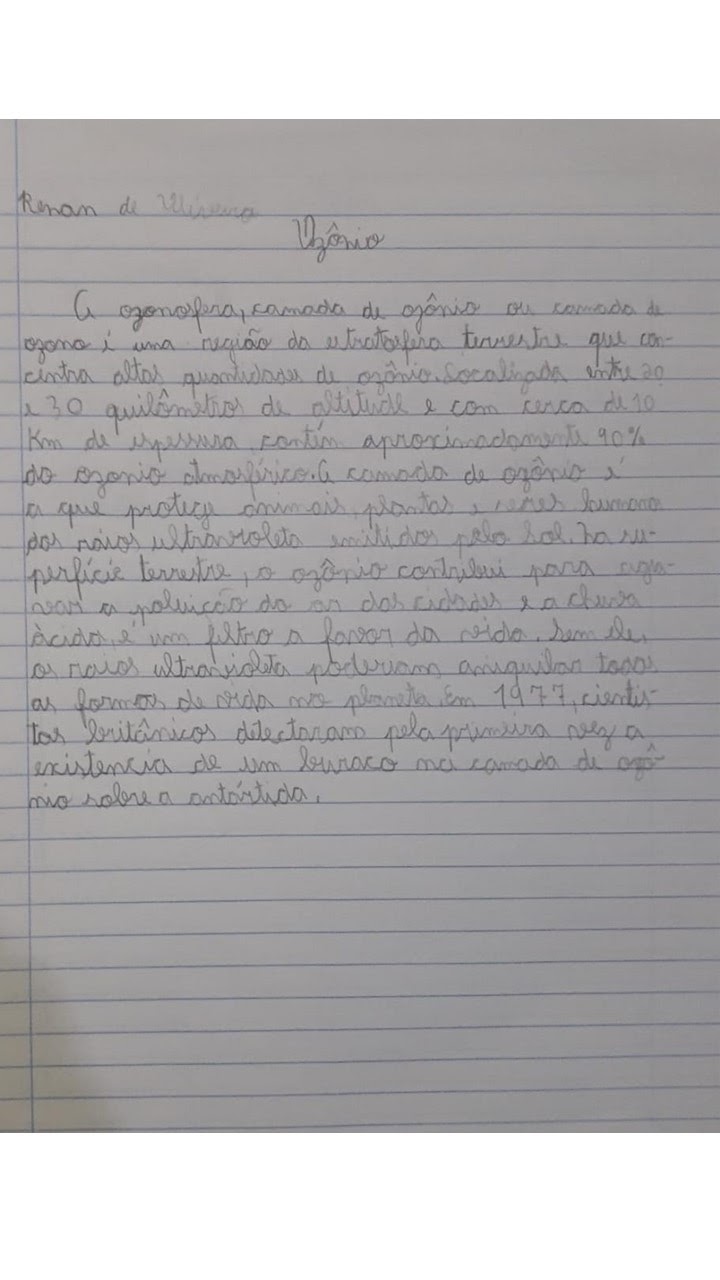 Renan de Oliveira
Ozônio
A ozonosfera, camada de ozônio ou camada de
ozono é uma região da estratosfera terrestre que con-
centra altas quantidades de ozônio. Localizada entre 20
e 30 quilômetros de altitude e com cerca de 10
Km de espessura, contém aproximadamente 90%
do ozonio atmosférico. A camada de ozônio é
a que protege animais, plantas e seres humano
dos raios ultravioleta emitidos pelo Sol. Na su-
perfície terrestre, o ozônio contribui para agra-
var a poluição do ar das cidades e a chuva
ácida, é um filtro a favor da vida. Sem ele,
os raios ultravioleta poderiam aniquilar todas
as formas de vida no planeta. Em 1977, cientis-
tas britânicos detectaram pela primeira vez a
existencia de um buraco na camada de ozô-
nio sobre a antártida.